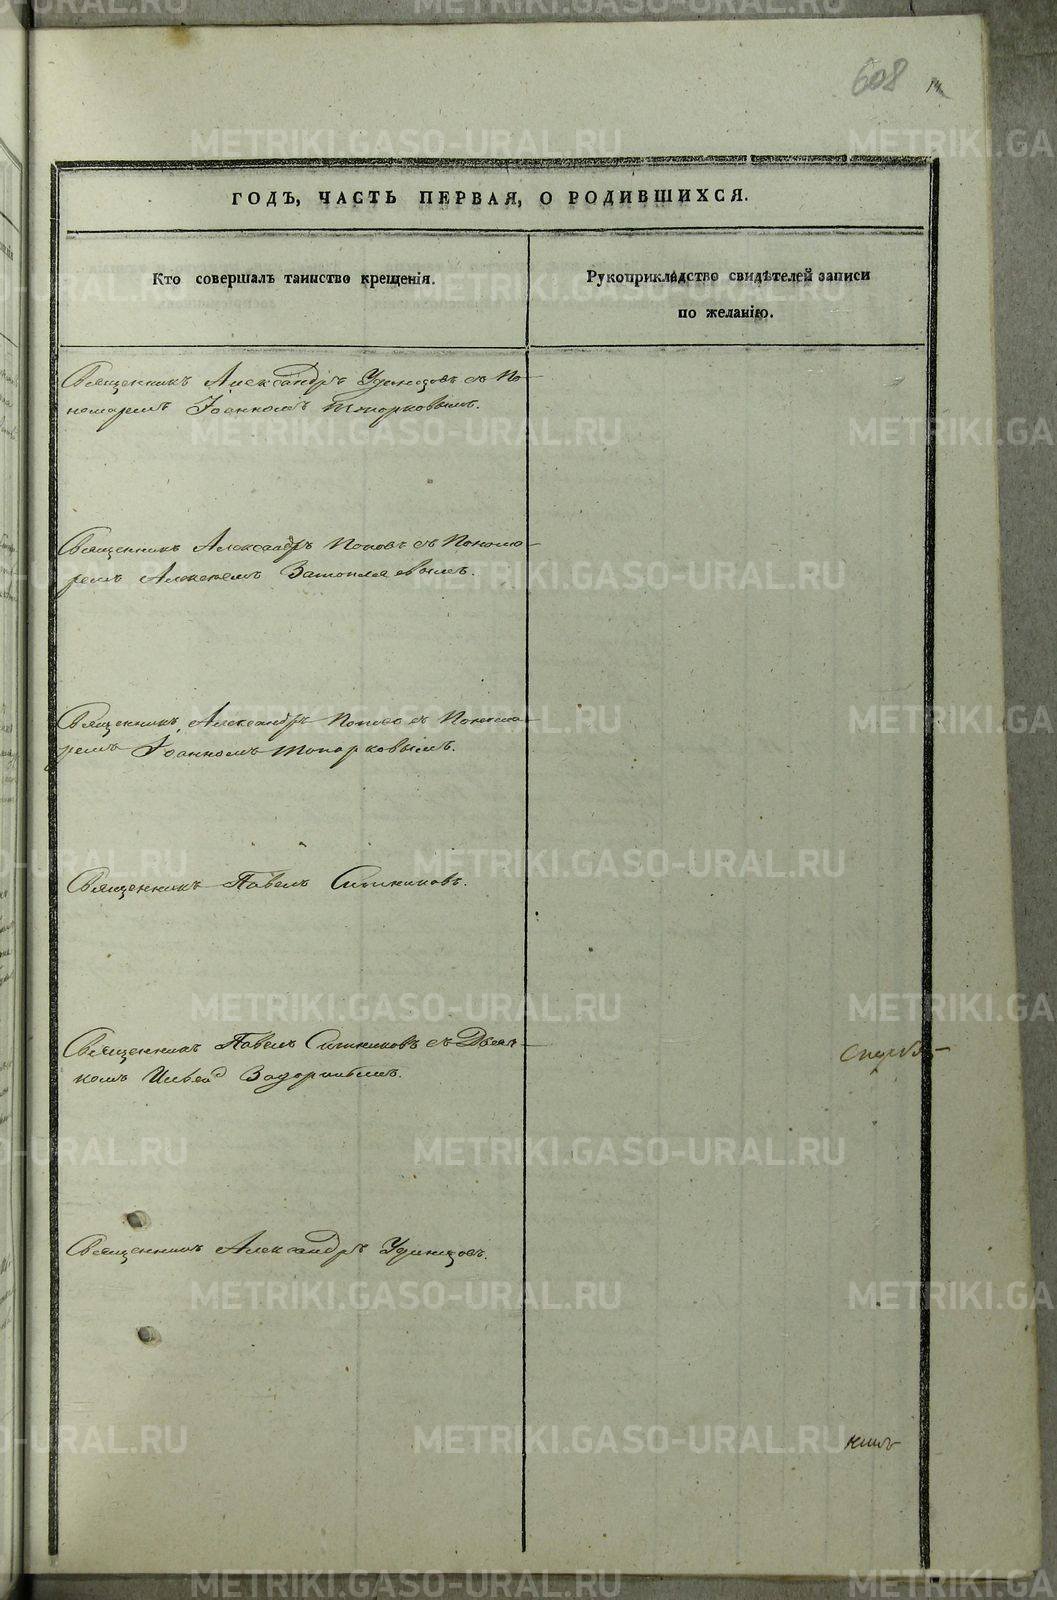 608
ГОДЪ, ЧАСТЬ ПЕРВАЯ, О РОДИВШИХСЯ.
Кто совершалъ таинство крещенія.
Рукоприкладство свидѣтелей записи
по желанію.
Священникъ Александръ Удинцовъ съ По-
номаремъ Іоанномъ Топорковымъ.
Священникъ Александръ Поповъ съ Понома-
ремъ Алексѣемъ
Священникъ Александръ Поповъ съ Понома-
ремъ Іоанномъ Топорковымъ.
Священникъ Павелъ Ситниковъ.
Священникъ Павелъ Ситниковъ съ Дьяч-
комъ
Священникъ Александръ Удинцовъ.
METRIKI.GASO-URAL.RU